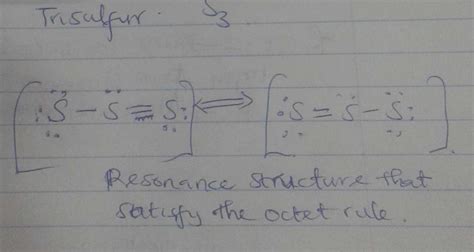 Trisulfur. S₃
[:S̈ - S̈ ≡ S:] ⟺ [:S = S̈ - S̈:]
Resonance structure that
satisfy the octet rule.